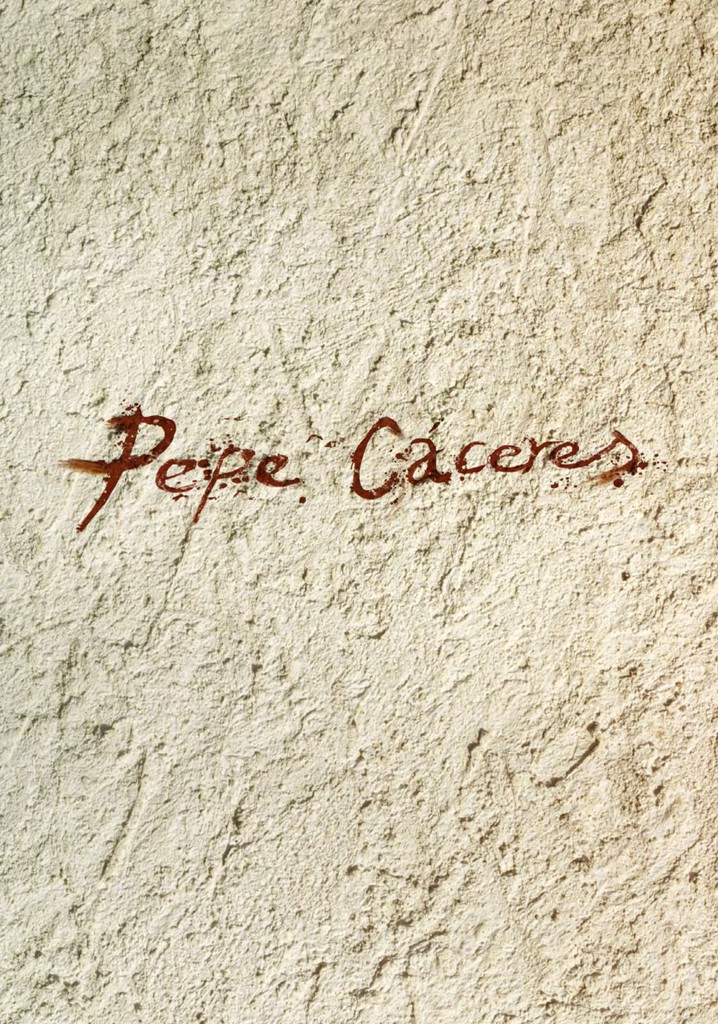 Pepe Cáceres